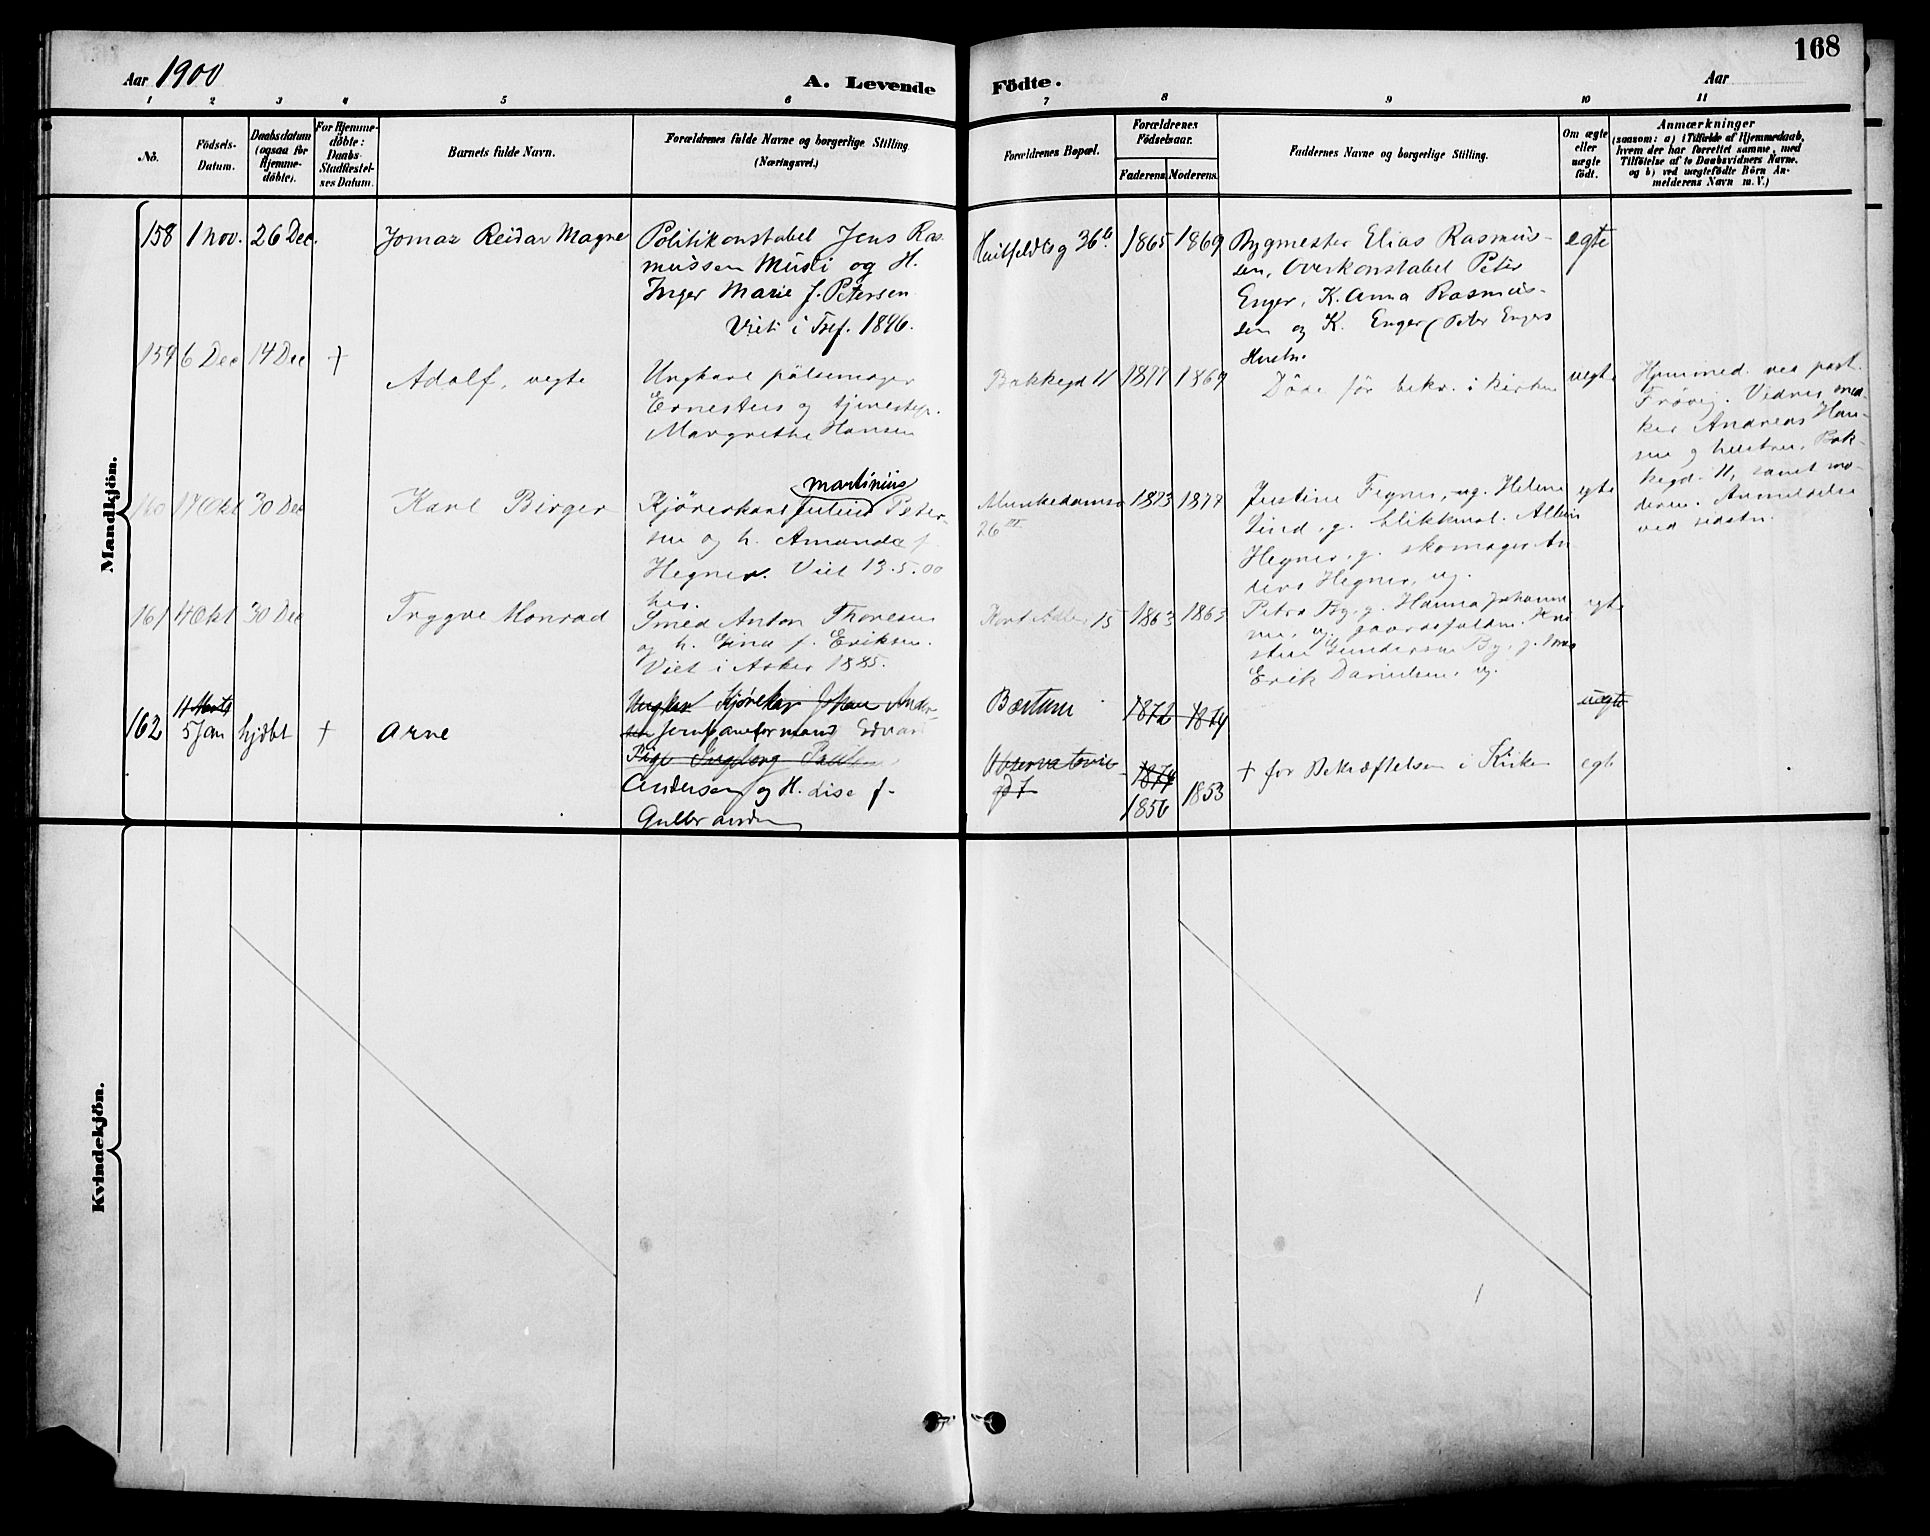 168
Aar 1900
A. Levende Födte.
Aar
1 2 3 4 5 6 7 8 9 10 11
No.
Födsels-Datum.
Daabsdatum (ogsaa for Hjemme-döbte).
For Hjemme-döbte: Daabs-Stadfæstel-ses Datum.
Barnets fulde Navn.
Forældrenes fulde Navne og borgerlige Stilling (Næringsvei.)
Forældrenes Bopæl.
Forældrenes Födselsaar.
Faderens. Moderens.
Faddernes Navne og borgerlige Stilling.
Om ægte eller uægte födt.
Anmærkninger
(saasom: a) i Tilfælde af Hjemmedaab,
hvem der har forrettet samme, med
Tilföielse af to Daabsvidners Navne,
og b) ved uægtefödte Börn An-
melderens Navn m. V.)
Mandkjön.
158 1 Nov. 26 Dec. Jomar Reidar Magne
Politikonstabel Jens Ras
mussen Musli og H.
Inger Marie f. Petersen
Viet i Tref. 1896.
Huitfeldts g 36 b 1865 1869
Bygmester Elias Rasmus-
sen, Overkonstabel Peter
Enger, K. Anna Rasmus-
sen og K. Enger (Peter Engers
Hustru
egte
159 6 Dec 14 Dec + Adolf, uegte
Ungkarl pölsemager
Ernestus og tjenestep.
Margrethe Hansen
Bakkegd 11 1877 1869
Döde för bekr. i kirken
uegte
Hjemmed. ved past.
Frövig. Vidner, sned-
ker Andreas Han-
sen og hustru, Bak-
kegd. 11, samt mo-
deren. Anmeldelse
ved sidstn.
160 17 Okt 30 Dec Karl Birger
Martinius
Kjörerkarl Julius Peder-
sen og h. Amanda f.
Hegner. Viet 13.5.00
her.
Munkedamsv 26 III 1873 1877
Justine Hegner, ug. Helene
Lind, g. blikkensl. Albin
Hegner, g. skomager An
ders Hegner, ug.
egte
161 4 Okt 30 Dec Tryggve Monrad
Smed Anton Thoresen
og h. Gina f. Eriksen.
Viet i Asker 1885.
Kort Adlers 15 1863 1863
Petra By, g. Hanna Johanne
Erik Danielsen, ug.
egte
162 5 Jan hjdbt + Arne
Ungkar Kjörekar Johan Ander-
sen Jernbaneformand Edvard
Pige Ingeborg Paulsen
Andersen og H. Lise f.
Gulbrandsen
Bærtum
Observatorie-
gd 7
1872 1874
1874
1856 1853
+ för Bekræftelsen i Kirken
uegte
egte
Kvindekjön.